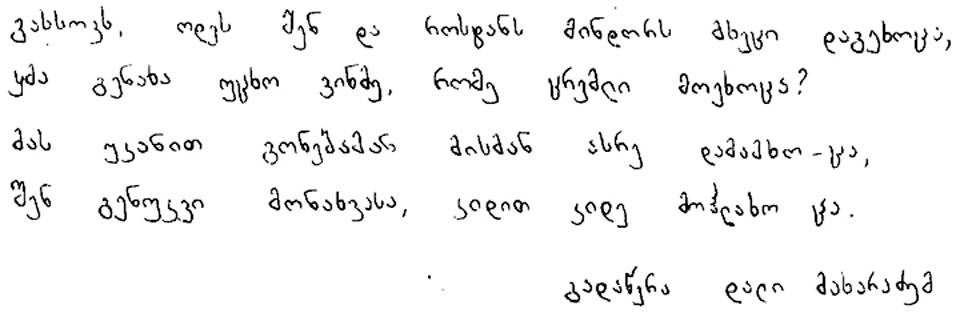 გახსოვს, ოდეს შენ და როსტანს მინდორს მხეცი დაგეხოცა,
ყმა გენახა უცხო ვინმე, რომე ცრემლი მოეხოცა?
მას უკანით გონებამან მისმან ასრე დამამხო-ცა,
შენ გენუკვი მონახვასა, კიდით კიდე მოჰლახო ცა.
გადაწერა დალი მახარაძემ